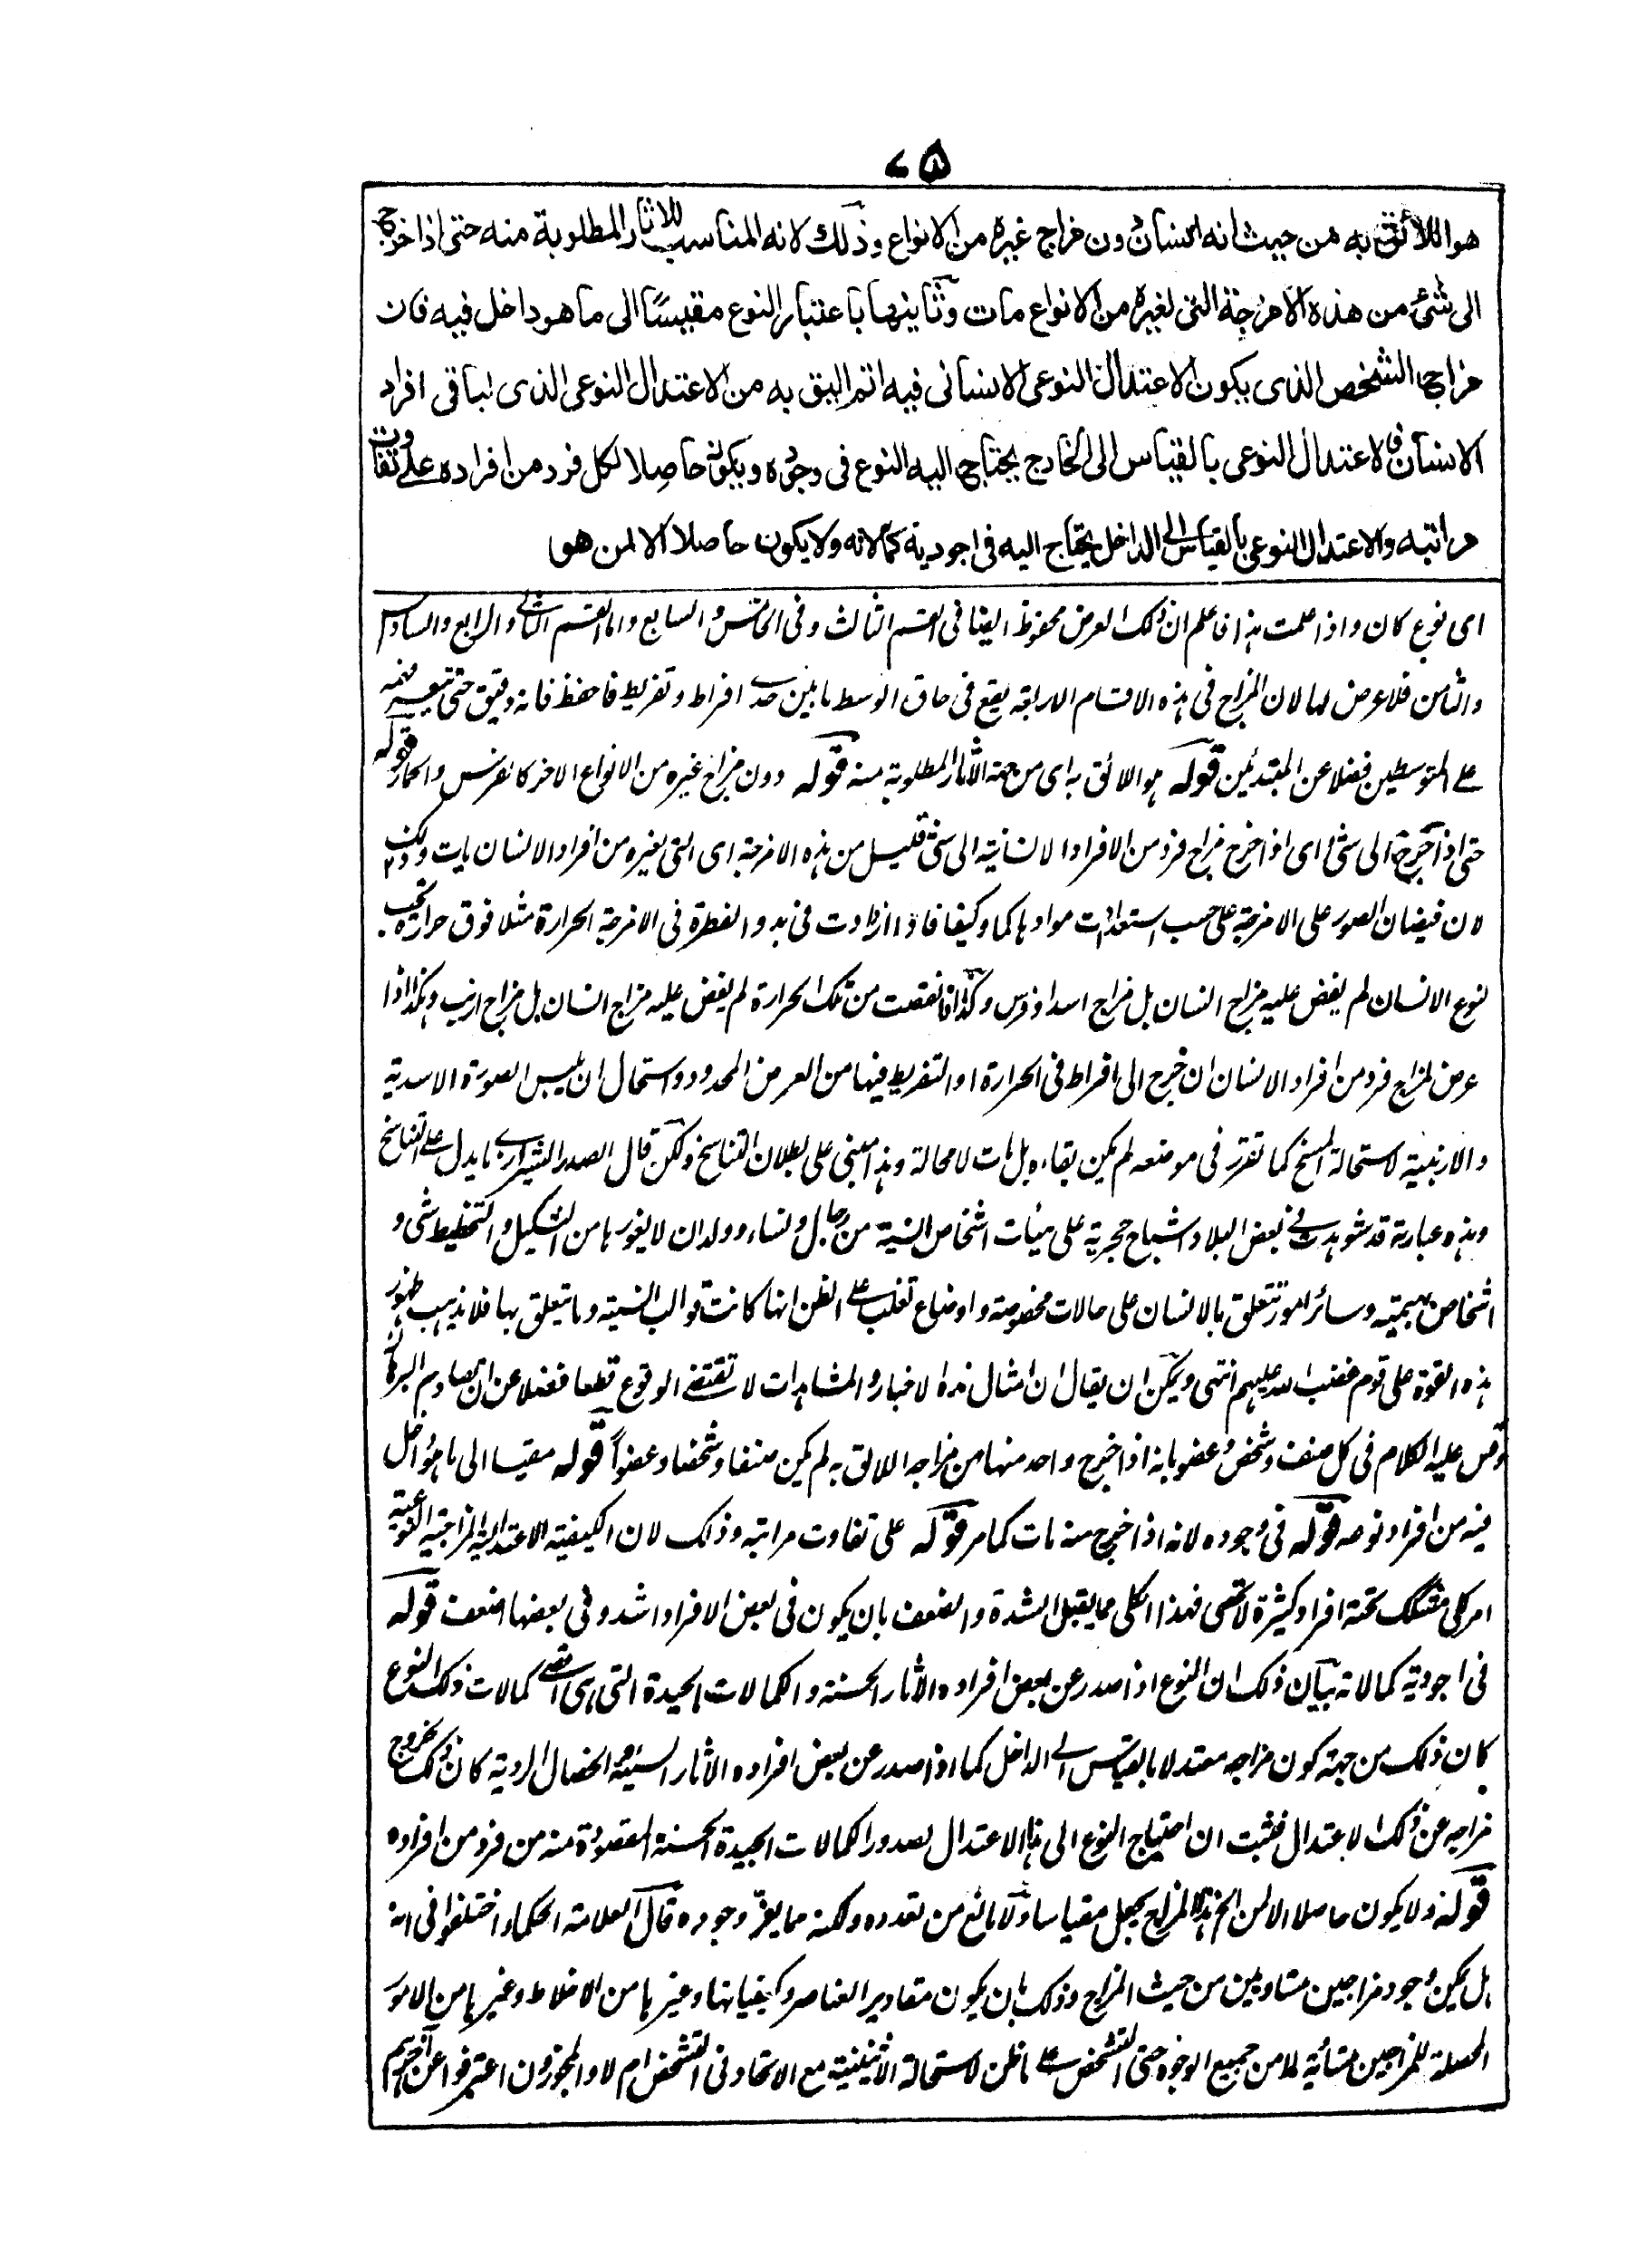 ٧٥
هو اللائق به من حيث انه انسان دون مزاج غيره من الانواع وذلك لانه المناسب للاثار المطلوبة منه حتى اذا خرج
الى شئ من هذه الامزجة التى لغيره من الانواع مات وثانيها باعتبار النوع مقيسًا الى ما هو داخل فيه فان
مزاج الشخص الذى يكون الاعتدال النوعى الانسانى فيه اتم اليق به من الاعتدال النوعى الذى لباقى افراد
الانسان فالاعتدال النوعى بالقياس الى الخارج يحتاج اليه النوع فى وجوده ويكون حاصلا لكل فرد من افراده على تفاوت
مراتبه والاعتدال النوعى بالقياس الى الداخل يحتاج اليه فى اجودية كمالاته ولا يكون حاصلا الا لمن هو
اى نوع كان واذا علمت هذا فاعلم ان ذلك العرض محفوظ ايضا فى القسم الثالث وفى الخامس والسابع واما القسم الثانى والرابع والسادس
والثامن فلا عرض لها لان المزاج فى هذه الاقسام الاربعة يقع فى حاق الوسط ما بين حدى افراط وتفريط فاحفظ فانه دقيق حتى تعسر فهمه
على المتوسطين فضلا عن المبتدئين قوله هو اللائق به اى من جهة الاثار المطلوبة منه قوله دون مزاج غيره من الانواع الاخر كالفرس والحمار قوله
حتى اذا خرج الى شئ اى اذا خرج مزاج فرد من الافراد الانسانية الى شئ قليل من هذه الامزجة اى التى لغيره من افراد الانسان مات وذلك
لان فيضان الصور على الامزجة على حسب استعدادات موادها كما وكيفا فاذا ازدادت فى بدو الفطرة فى الامزجة الحرارة مثلا فوق حرارة تجب
لنوع الانسان لم يفض عليه مزاج انسان بل مزاج اسد او فرس وكذا اذا نقصت من تلك الحرارة لم يفض عليه مزاج انسان بل مزاج ارنب وهكذا اذا
عرض لمزاج فرد من افراد الانسان ان خرج الى افراط فى الحرارة او التفريط فيها من العرض المحدود واستحال ان يلبس الصورة الاسدية
والارنبية لاستحالة المسخ كما تقرر فى موضعه لم يكن بقاءه بل مات لا محالة وهذا مبنى على بطلان التناسخ ولكن قال الصدر الشيرازى ما يدل على التناسخ
وهذه عبارته قد شوهدت فى بعض البلاد اشباح حجرية على هيئات اشخاص انسية من رجال ونساء وولدان لا يغورها من التشكيل والتخطيط شئ و
اشخاص بهيمية وسائر امور تتعلق بالانسان على حالات مخصوصة واوضاع تغلب على الظن انها كانت قوالب انسية وما يتعلق بها فلا يذهب ظهور
هذه القوة على قوم غضب الله عليهم انتهى ويمكن ان يقال ان امثال هذه الاخبار والمشاهدات لا تقتضى الوقوع قطعا فضلا عن ان يصادم البرهان
وقس عليه الكلام فى كل صنف وشخص وعضو بانه اذا خرج واحد منها من مزاجه اللائق به لم يكن صنفا وشخصا وعضواً قوله مقيسا الى ما هو داخل
فيه من افراد نوعه قوله فى وجوده لانه اذا خرج منه مات كما مر قوله على تفاوت مراتبه وذلك لان الكيفية الاعتدالية المزاجية النوعية
امر كلى مشكك تحته افراد كثيرة لا تحصى فهذا الكلى مما يقبل الشدة والضعف بان يكون فى بعض الافراد اشد وفى بعضها اضعف قوله
فى اجودية كمالاته بيان ذلك ان النوع اذا صدر عن بعض افراده الاثار الحسنة والكمالات الجيدة التى هى اقصى كمالات ذلك النوع
كان ذلك من جهة كون مزاجه معتدلا بالقياس الى الداخل كما اذا صدر عن بعض افراده الاثار السيئة والخصال الردية كان ذلك لخروج
مزاجه عن ذلك الاعتدال فثبت ان احتياج النوع الى هذا الاعتدال لصدور الكمالات الجيدة الحسنة المقصودة منه من فرد من افراده
قوله ولا يكون حاصلا الا لمن الخ هذا المزاج يجعل مقياسا ولا مانع من تعدده ولكنه مما يعز وجوده قال العلامة الحكماء اختلفوا فى انه
بل يمكن وجود مزاجين متساويين من حيث المزاج وذلك بان يكون مقادير العناصر وكيفياتها وغيرها من الاخلاط وغيرها من الامور
المحصلة للمزاجين متشابهة لا من جميع الوجوه حتى التشخص على ما ظن لاستحالة الاثنينية مع الاتحاد فى التشخص ام لا والمجوزون اعترفوا عن آخرهم